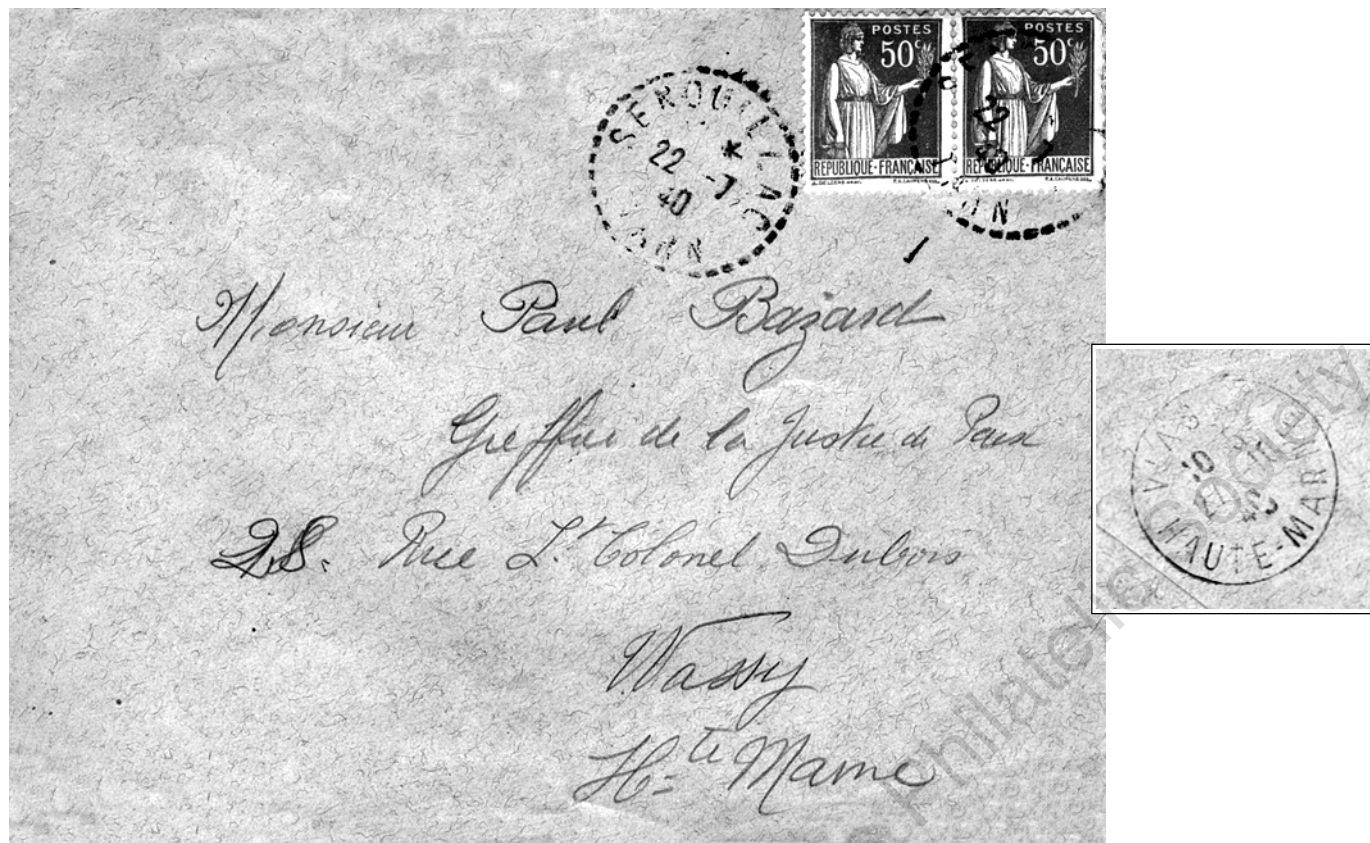 POSTES
50c
RÉPUBLIQUE-FRANÇAISE
POSTES
50c
RÉPUBLIQUE-FRANÇAISE
SEROUILLAC
*
22 -7
40
TARN
22
Monsieur Paul Bazard
Greffier de la Justice de Paix
28. Rue Lt Colonel Dubois
Wassy
Hte Marne
10
40
HAUTE-MARNE
Philatelic Society